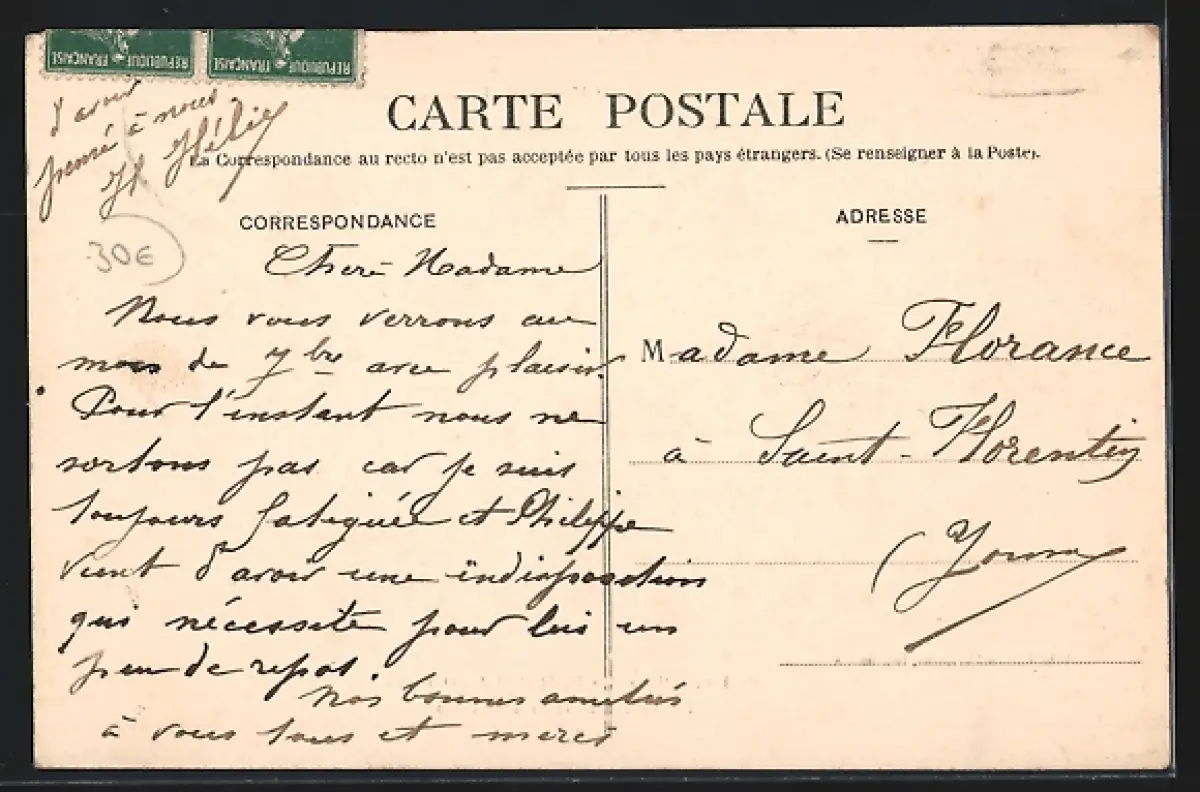 RÉPUBLIQUE FRANÇAISE
RÉPUBLIQUE FRANÇAISE
CARTE POSTALE
La Correspondance au recto n'est pas acceptée par tous les pays étrangers. (Se renseigner à la Poste).
CORRESPONDANCE
30€
Chère Madame
Nous vous verrons au
mois de 7bre avec plaisir.
Pour l'instant nous ne
sortons pas car je suis
toujours fatiguée et Philippe
vient d'avoir une indisposition
qui nécessite pour lui un
peu de repos.
Nos bonnes amitiés
à vous tous et merci
d'avoir
pensé à nous.
H Hélie
ADRESSE
Madame Florance
à Saint-Florentin
(Yonne